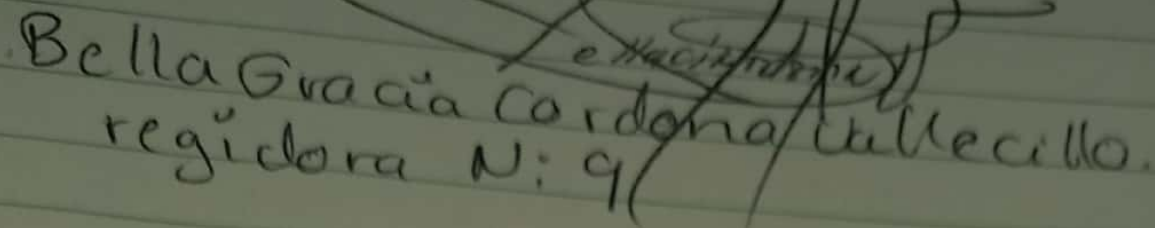 Bella Gracia Cardona Vallecillo.
regidora N: 9